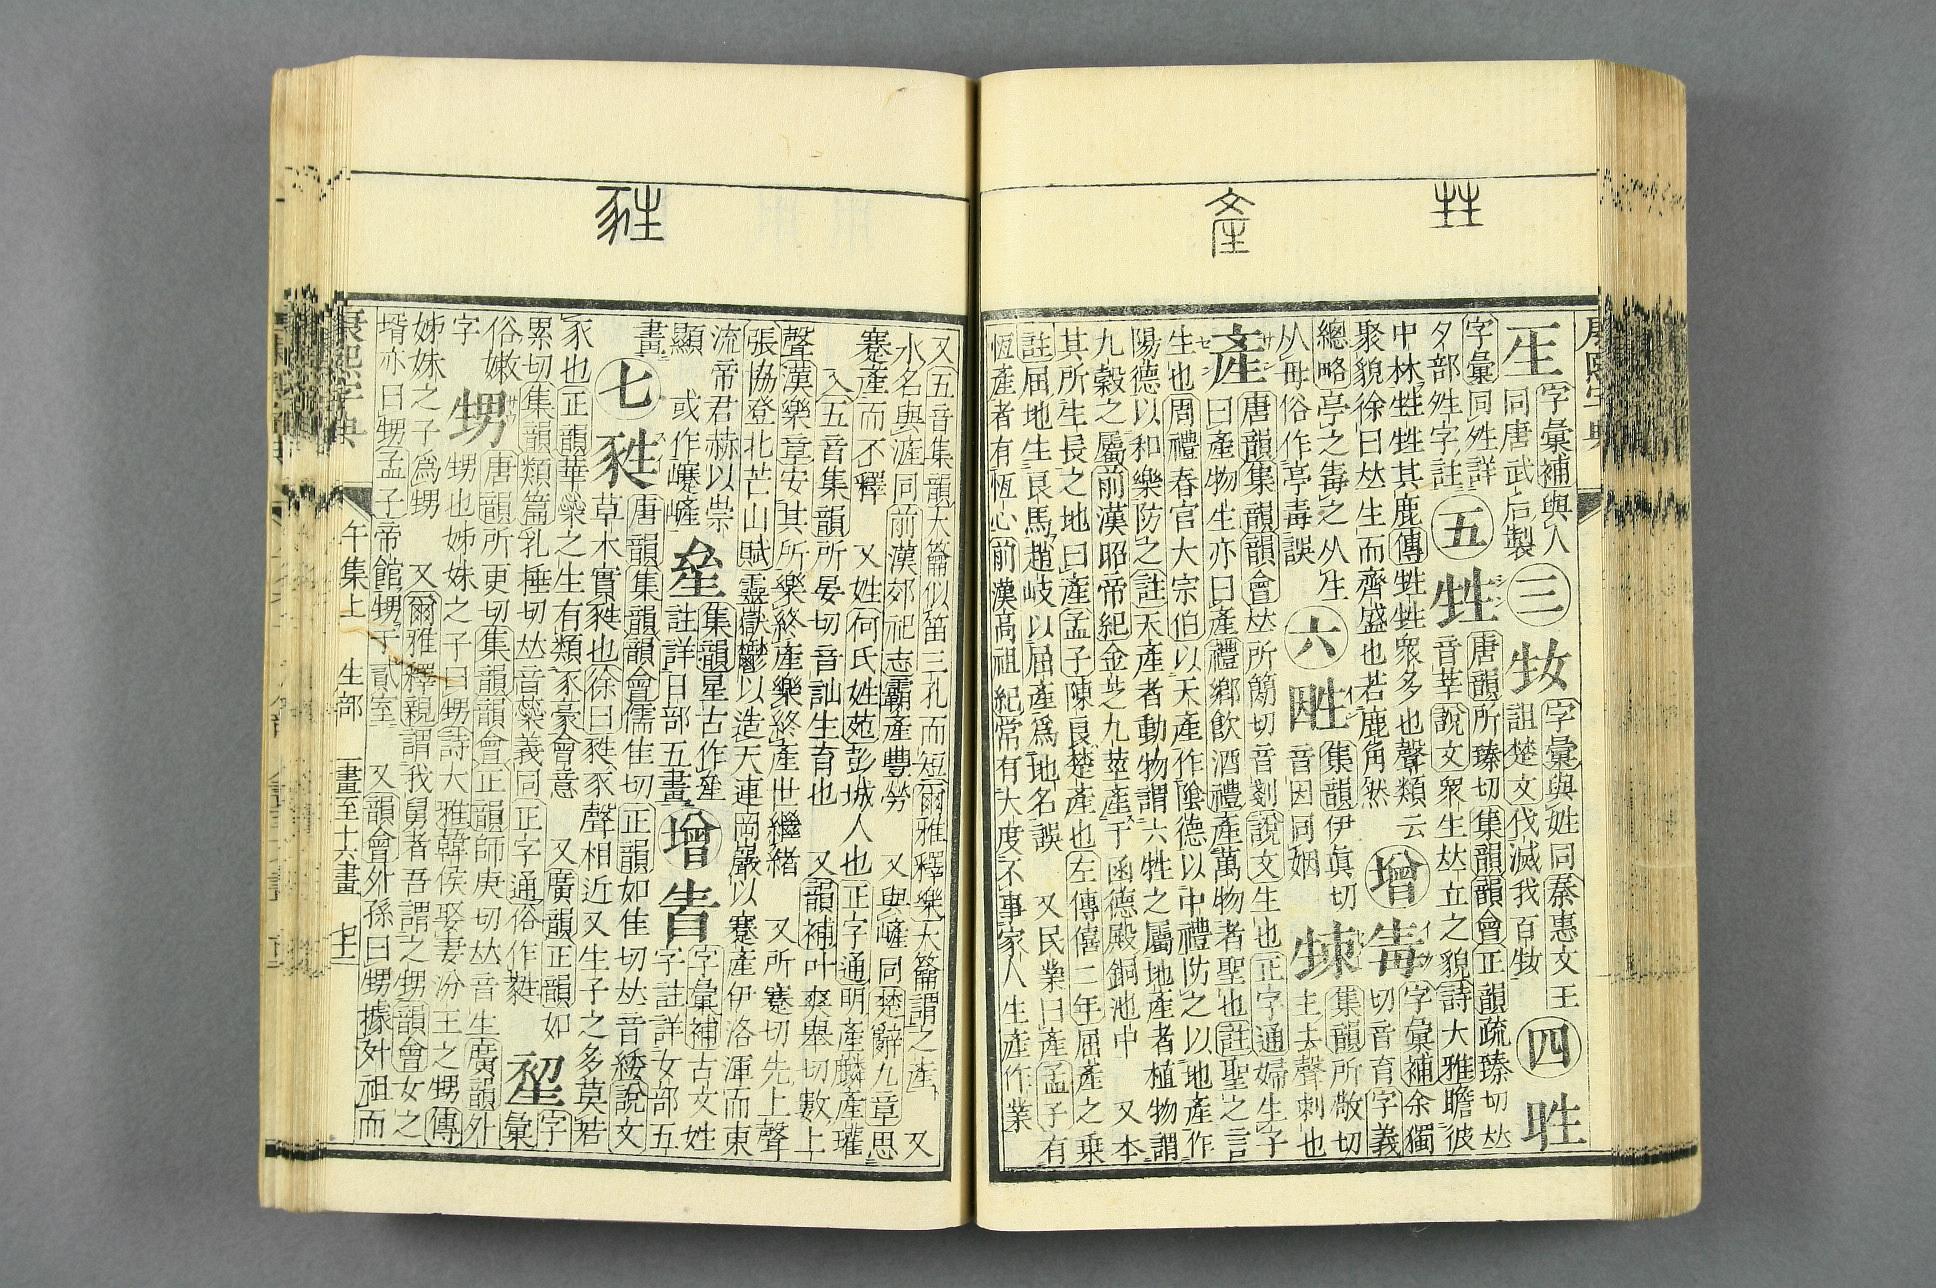 產
甡
𤯔
字彙補與人
同唐武后製
三
字彙與姓同秦惠文王
詛楚文伐滅我百㹤
四
字彙同殅詳
夕部殅字註
五
甡
唐韻所臻切集韻韻會正韻疏臻切𠀤
音莘說文衆生𠀤立之貌詩大雅瞻彼
中林甡甡其鹿傳甡甡衆多也聲類云
聚貌徐曰𠀤生而齊盛也若鹿角然
增
字彙補余獨
切音育字義
總略亭之毒之从生
从母俗作亭毒誤
六
集韻伊眞切
音因同姻
集韻所敬切
主去聲刺也
產
唐韻集韻韻會𠀤所簡切音剗說文生也正字通婦生子
曰產物生亦曰產禮鄕飲酒禮產萬物者聖也註聖之言
生也周禮春官大宗伯以天產作隂德以中禮防之以地產作
陽德以和樂防之註天產者動物謂六牲之屬地產者植物謂
九穀之屬前漢昭帝紀金芝九莖產于函德殿銅池中 又本
其所生長之地曰產孟子陳良楚產也左傳僖二年屈產之乗
註屈地生良馬趙岐以屈產爲地名誤 又民業曰產孟子有
恆產者有恆心前漢高祖紀常有大度不事家人生產作業
又五音集韻大籥似笛三孔而短爾雅釋樂大籥謂之產 又
水名與滻同前漢郊祀志霸產豐勞 又與嵼同楚辭九章思
蹇產而不釋 又姓何氏姓苑彭城人也正字通明產麟產瓘
入五音集韻所晏切音訕生育也 又韻補叶爽舉切數上
聲漢樂章安其所樂終產樂終產世繼緖 又所蹇切先上聲
張協登北芒山賦靈嶽鬱以造天連岡巖以蹇產伊洛渾而東
流帝君赫以崇
顯 或作㠝嵼
垒
集韻星古作垒
註詳日部五畫
增
字彙補古文姓
字註詳女部五
畫
七
甤
唐韻集韻韻會儒隹切正韻如隹切𠀤音緌說文
草木實甤甤也徐曰甤豕聲相近又生子之多莫若
豕也正韻華榮之生有類豕豪會意 又廣韻正韻如
累切集韻類篇乳捶切𠀤音蘂義同正字通俗作甤
字彙
俗嫩
字
甥
唐韻所更切集韻韻會正韻師庚切𠀤音生廣韻外
甥也姊妹之子曰甥詩大雅韓侯娶妻汾王之甥傳
姊妹之子爲甥 又爾雅釋親謂我舅者吾謂之甥韻會女之
壻亦曰甥孟子帝館甥于貳室 又韻會外孫曰甥據外祖而
康熙字典
午集上 生部 一畫至十六畫